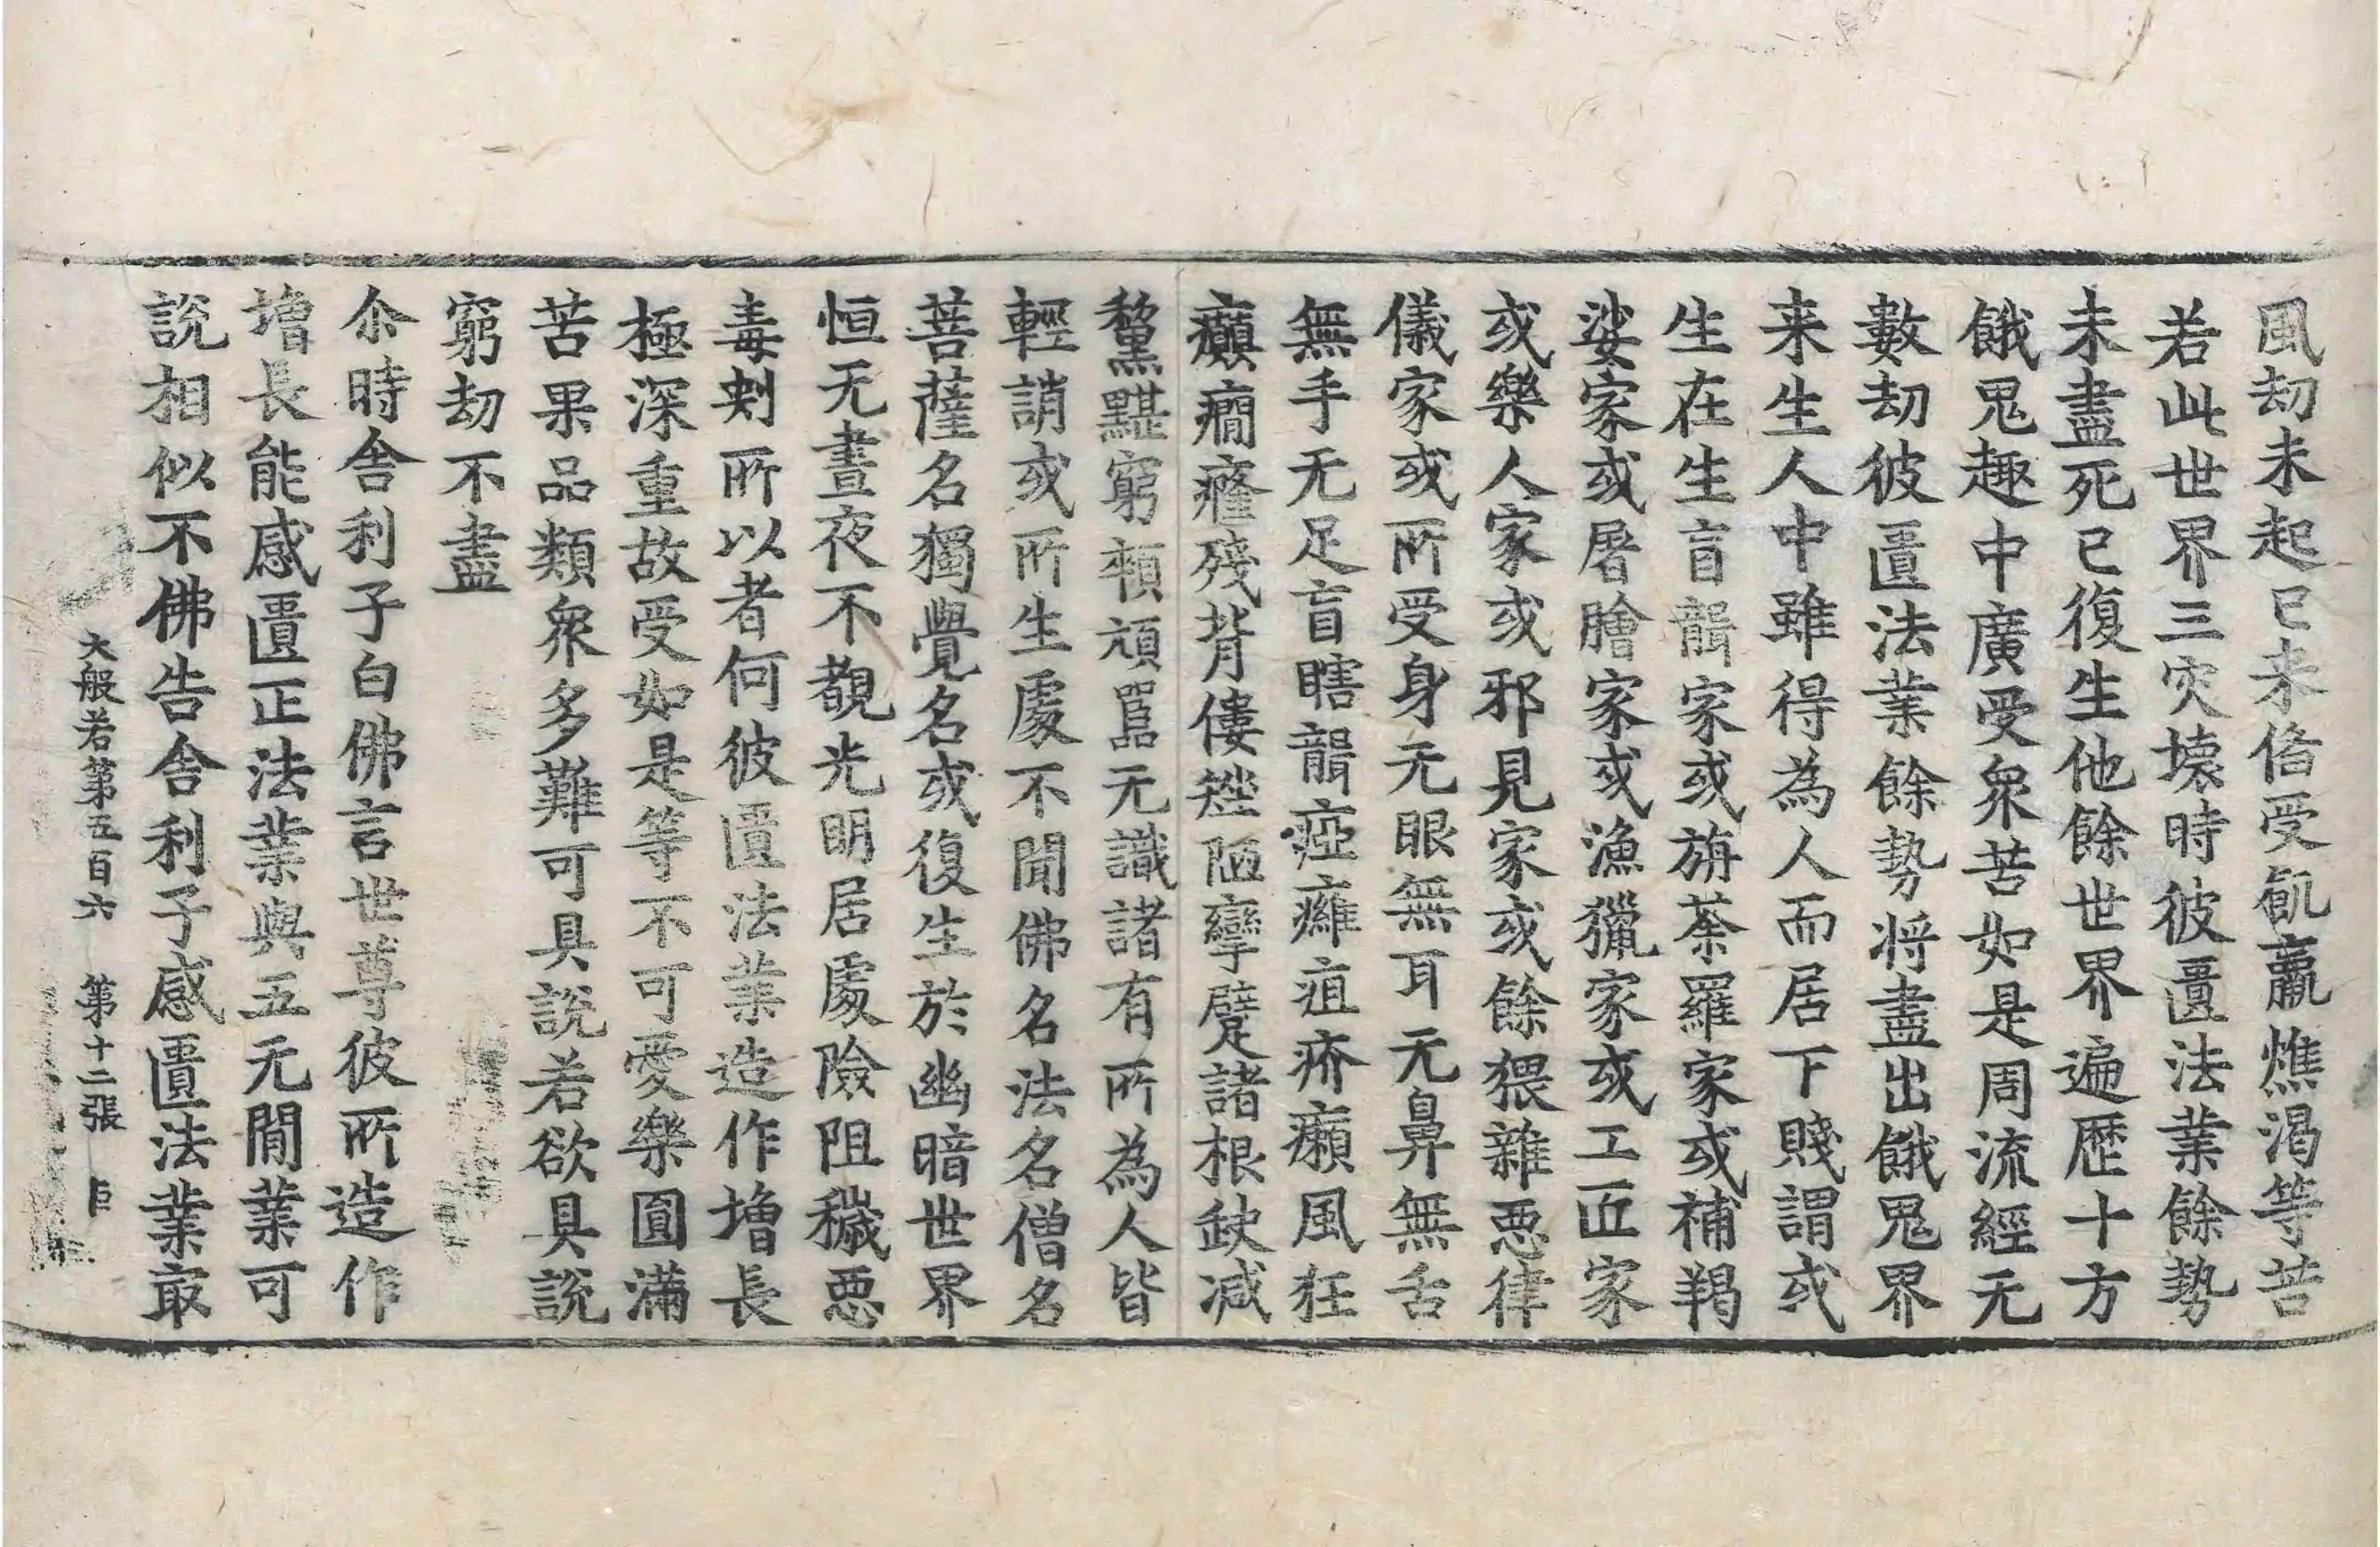 風劫未起已来俻受飢羸燋渴等苦
若此世界三灾壞時彼匱法業餘勢
未盡死已復生他餘世界遍歷十方
餓鬼趣中廣受衆苦如是周流經无
數劫彼匱法業餘勢将盡出餓鬼界
来生人中雖得為人而居下賤謂或
生在生盲聾家或旃荼羅家或補羯
娑家或屠膾家或漁獵家或工匠家
或樂人家或邪見家或餘猥雜惡律
儀家或所受身无眼無耳无鼻無舌
無手无足盲瞎聾瘂癰疽疥癩風狂
癲癎癃殘背僂矬陋攣躄諸根缺减
黧黮窮頼頑嚚无識諸有所為人皆
輕誚或所生處不聞佛名法名僧名
菩薩名獨覺名或復生於幽暗世界
恒无晝夜不覩光明居處險阻穢惡
毒刺所以者何彼匱法業造作增長
極深重故受如是等不可愛樂圓滿
苦果品類衆多難可具說若欲具說
窮劫不盡
尒時舍利子白佛言世尊彼所造作
增長能感匱正法業與五无間業可
說相似不佛告舍利子感匱法業㝡
大般若第五百六 第十二張